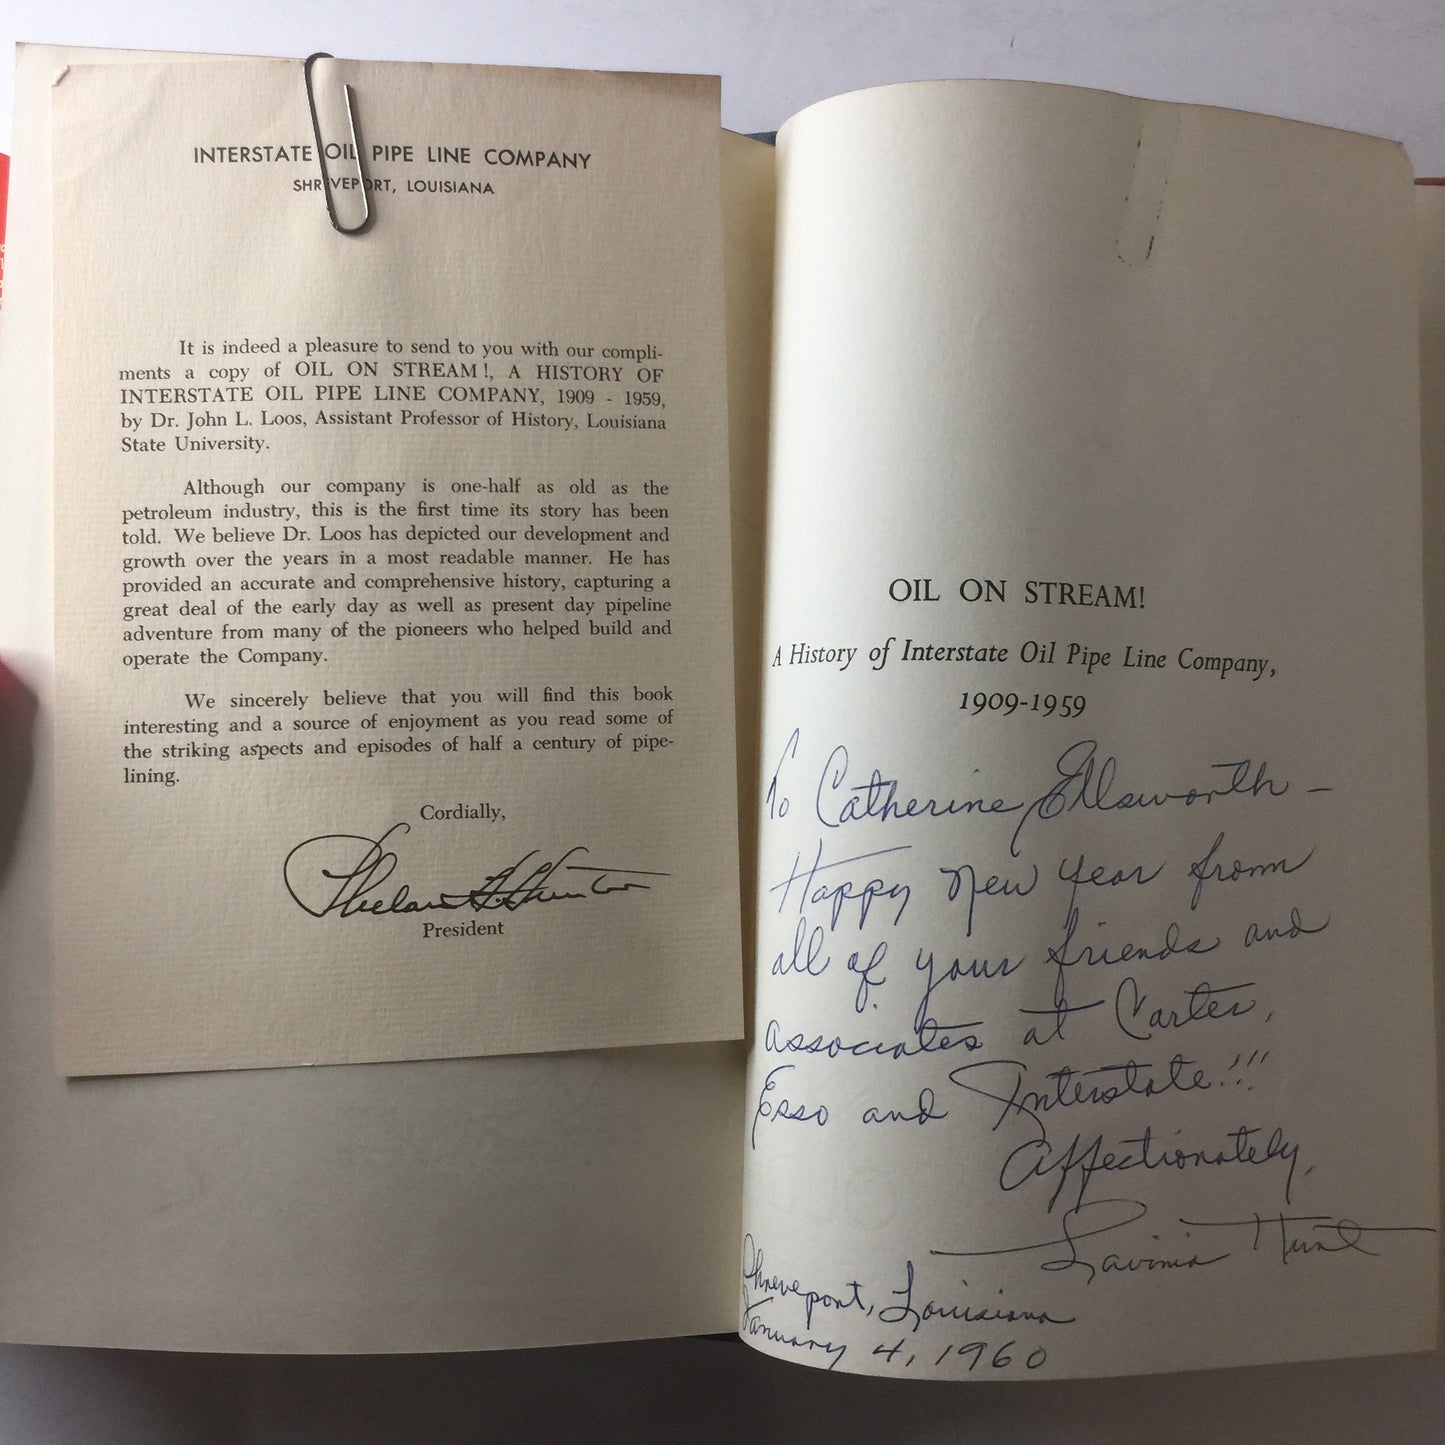 INTERSTATE OIL PIPE LINE COMPANY
SHREVEPORT, LOUISIANA
It is indeed a pleasure to send to you with our compli-
ments a copy of OIL ON STREAM!, A HISTORY OF
INTERSTATE OIL PIPE LINE COMPANY, 1909 - 1959,
by Dr. John L. Loos, Assistant Professor of History, Louisiana
State University.
Although our company is one-half as old as the
petroleum industry, this is the first time its story has been
told. We believe Dr. Loos has depicted our development and
growth over the years in a most readable manner. He has
provided an accurate and comprehensive history, capturing a
great deal of the early day as well as present day pipeline
adventure from many of the pioneers who helped build and
operate the Company.
We sincerely believe that you will find this book
interesting and a source of enjoyment as you read some of
the striking aspects and episodes of half a century of pipe-
lining.
Cordially,
Phelan H. Hunter
President
OIL ON STREAM!
A History of Interstate Oil Pipe Line Company,
1909-1959
To Catherine Ellsworth —
Happy New Year from
all of your friends and
associates at Carter,
Esso and Interstate!!!
Affectionately,
Lavinia Hunt
Shreveport, Louisiana
January 4, 1960